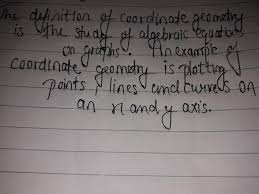 The definition of coordinate geometry
is the study of algebraic equation
on graphs. An example of
coordinate geometry is plotting
points, lines and curves on
an x and y axis.